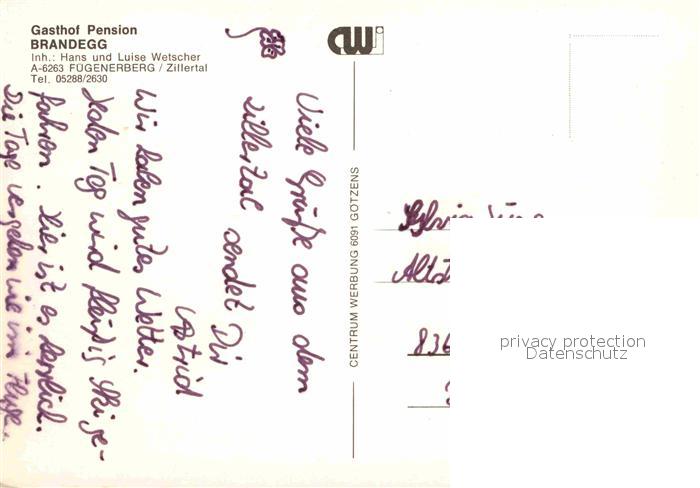 Gasthof Pension
BRANDEGG
Inh.: Hans und Luise Wetscher
A-6263 FÜGENERBERG / Zillertal
Tel. 05288/2630
CWi
Viele Grüße aus dem
Zillertal sendet Dir
Astrid
Wir haben gutes Wetter.
Jeden Tag wird fleißig Ski ge-
fahren. Hier ist es herrlich.
Die Tage vergehen wie im Fluge.
CENTRUM WERBUNG 6091 GÖTZENS
Sylvia
836
privacy protection
Datenschutz